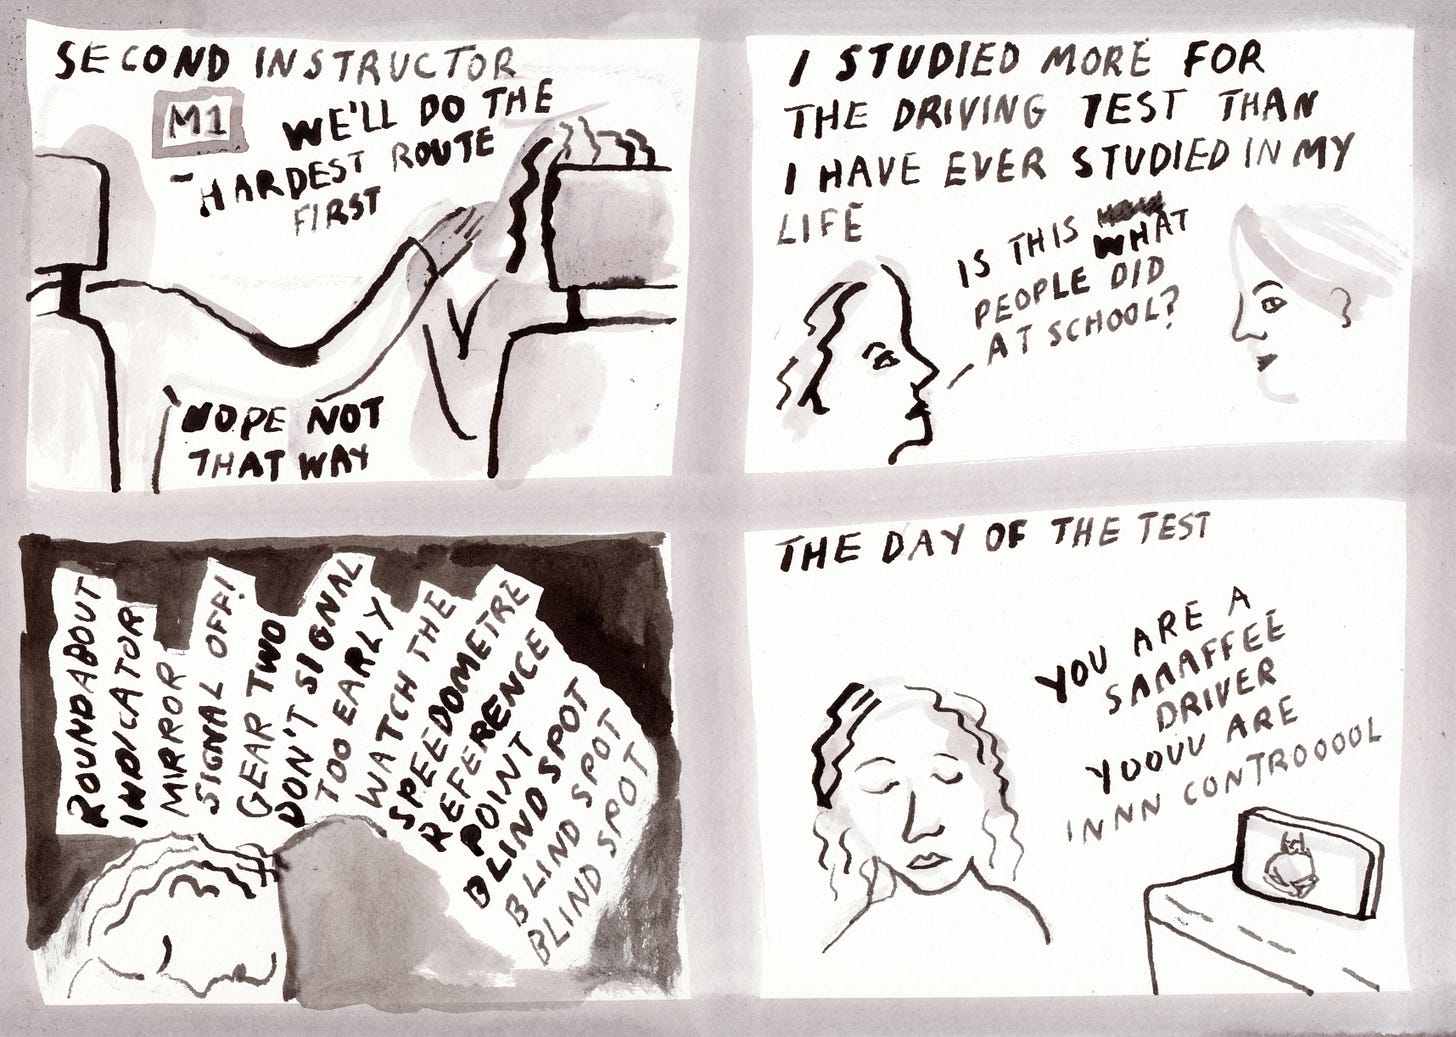 SECOND INSTRUCTOR
M1
WE'LL DO THE
HARDEST ROUTE
FIRST
NOPE NOT
THAT WAY
I STUDIED MORE FOR
THE DRIVING TEST THAN
I HAVE EVER STUDIED IN MY
LIFE
IS THIS WHAT
PEOPLE DID
AT SCHOOL?
ROUNDABOUT
INDICATOR
MIRROR
SIGNAL OFF!
GEAR TWO
DON'T SIGNAL
TOO EARLY
WATCH THE
SPEEDOMETRE
REFERENCE
POINT
BLIND SPOT
BLIND SPOT
BLIND SPOT
THE DAY OF THE TEST
YOU ARE A
SAAAFFEE
DRIVER
YOOUU ARE
INNN CONTROOOOL